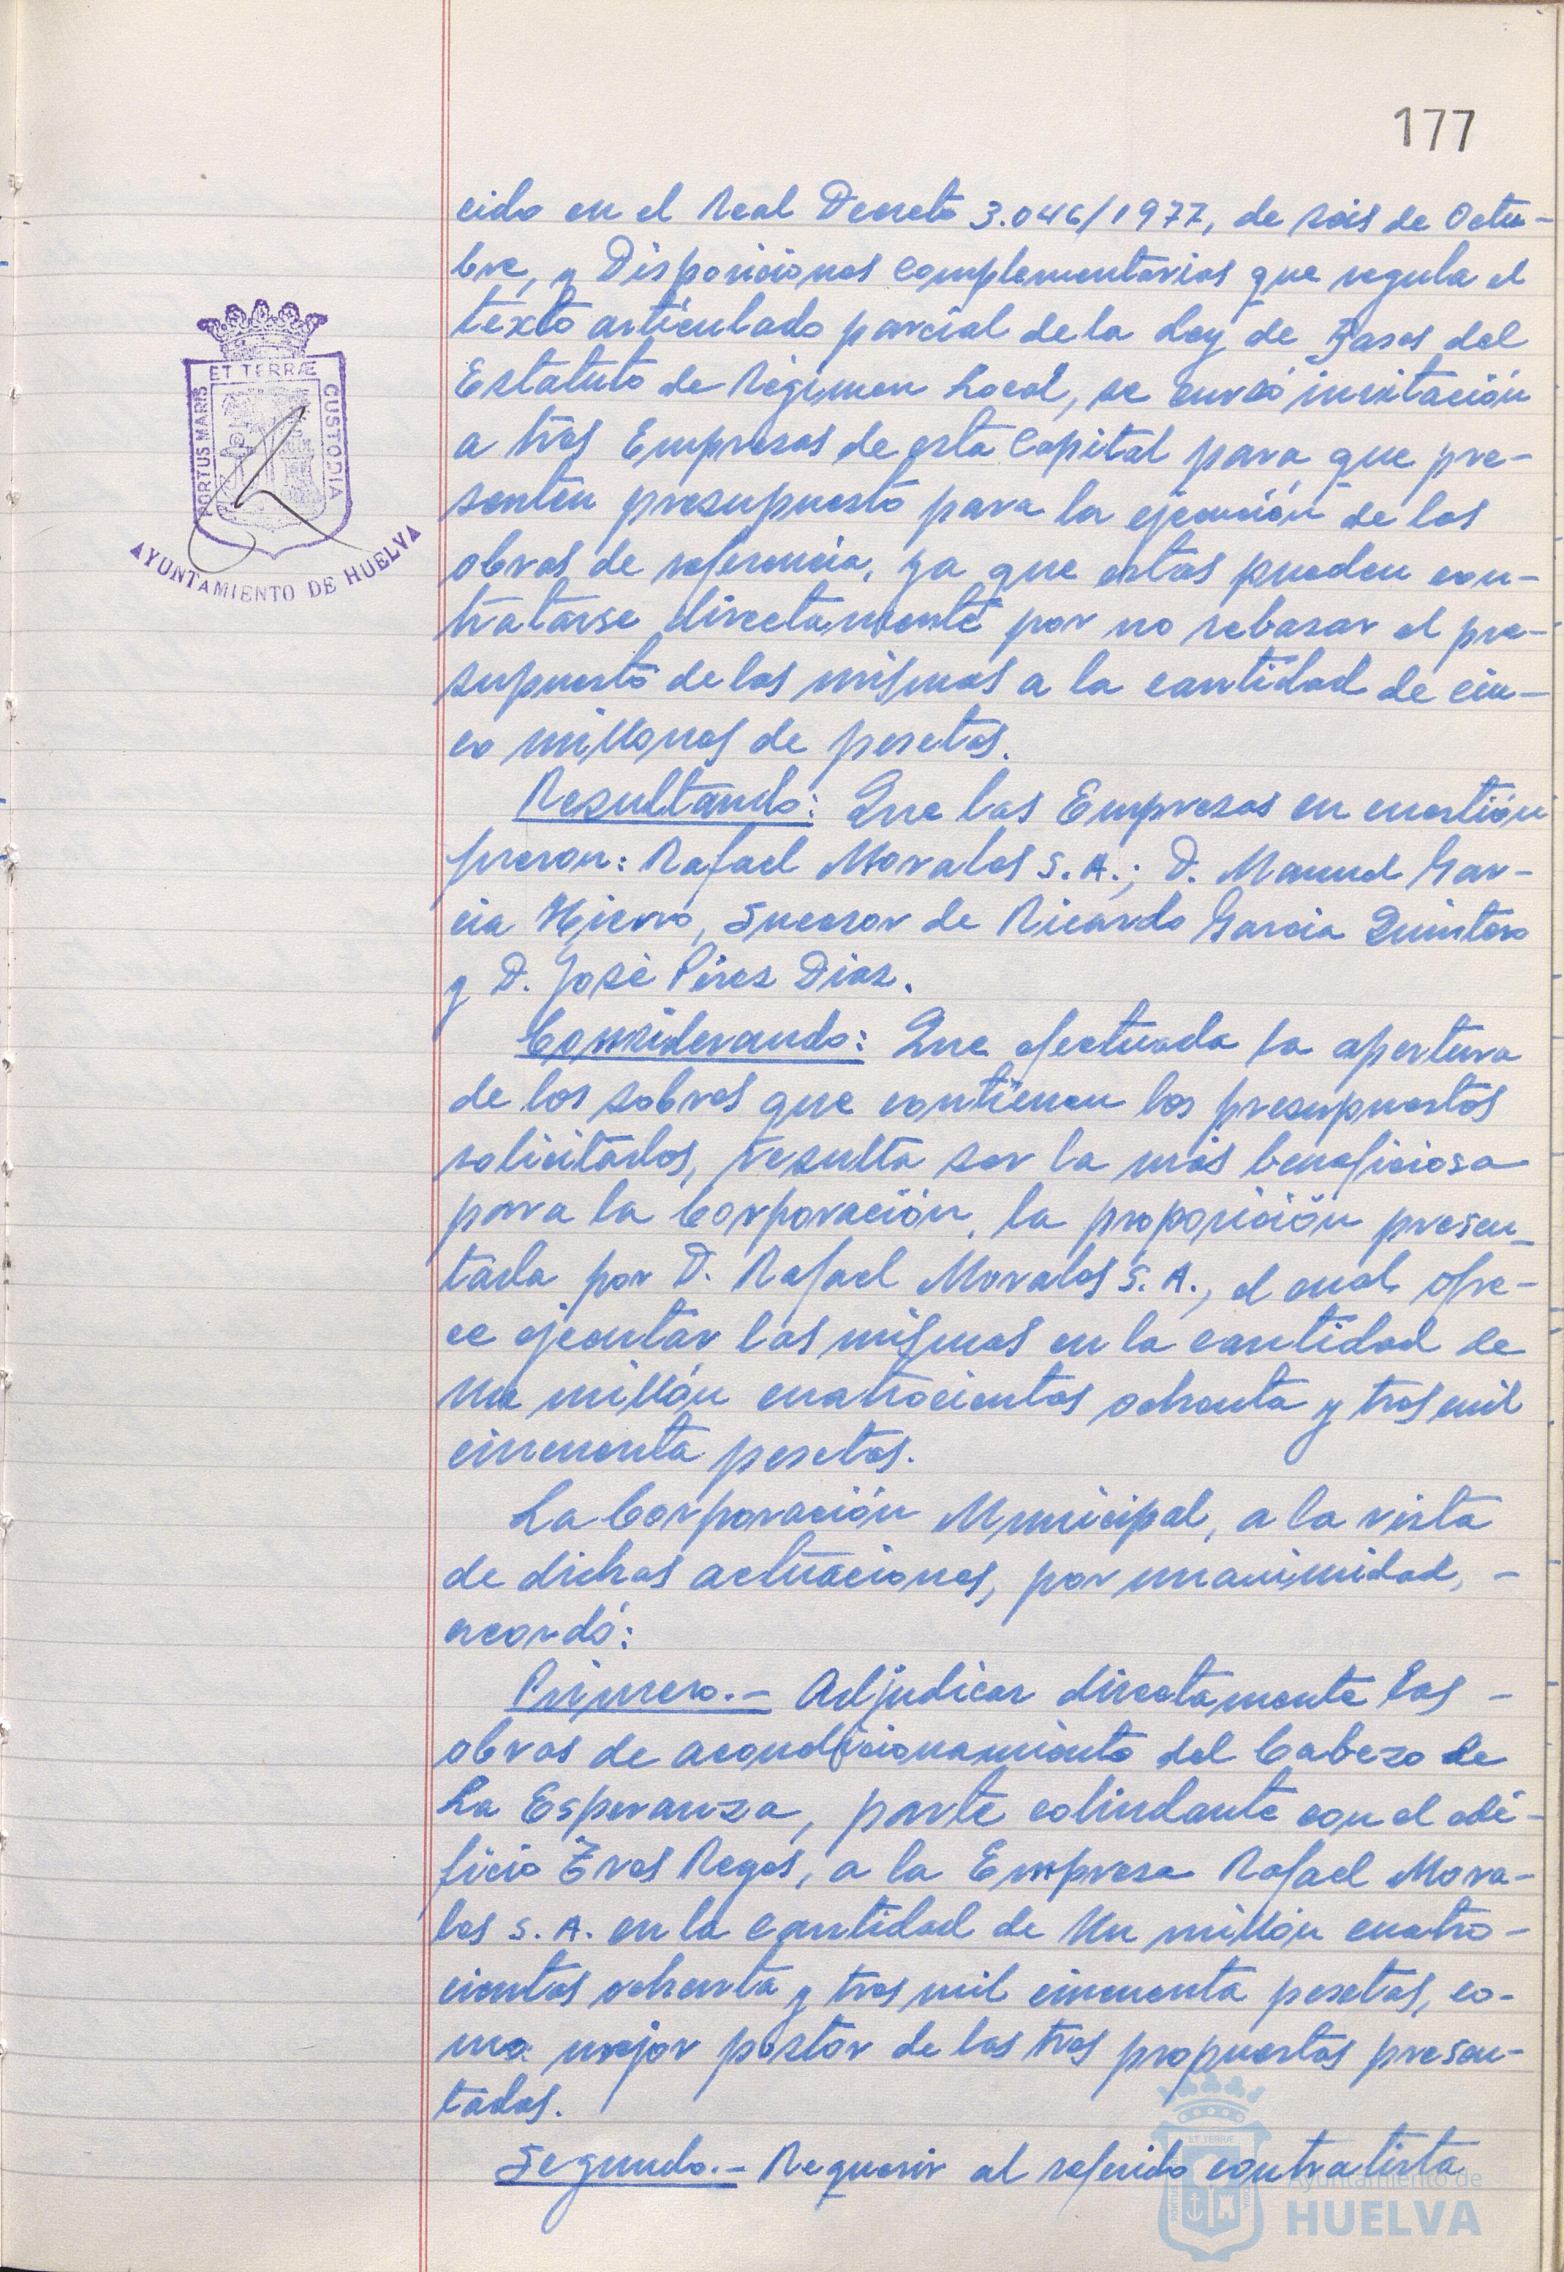 177
cido en el Real Decreto 3.046/1977, de seis de Octu-
bre, y Disposiciones complementarias que regula el
texto articulado parcial de la Ley de Bases del
Estatuto de Régimen Local, se cursó invitación
a tres Empresas de esta Capital para que pre-
senten presupuesto para la ejecución de las
obras de referencia, ya que estas pueden con-
tratarse directamente por no rebasar el pre-
supuesto de las mismas a la cantidad de cin-
co millones de pesetas.
Resultando: Que las Empresas en cuestión
fueron: Rafael Morales S.A.; D. Manuel Gar-
cia Hierro, Sucesor de Ricardo Garcia Quintero
y D. José Pérez Diaz.
Considerando: Que efectuada la apertura
de los sobres que contienen los presupuestos
solicitados, resulta ser la más beneficiosa
para la Corporación, la proposición presen-
tada por D. Rafael Morales S.A., el cual ofre-
ce ejecutar las mismas en la cantidad de
Un millón cuatrocientas ochenta y tres mil
cincuenta pesetas.
La Corporación Municipal, a la vista
de dichas actuaciones, por unanimidad, -
acordó:
Primero.- Adjudicar directamente las -
obras de acondicionamiento del Cabezo de
La Esperanza, parte colindante con el edi-
ficio Tres Reyes, a la Empresa Rafael Mora-
les S.A. en la cantidad de Un millón cuatro-
cientas ochenta y tres mil cincuenta pesetas, co-
mo mejor postor de las tres propuestas presen-
tadas.
Segundo.- Requerir al referido contratista
PORTUS MARIS
ET TERRÆ
CUSTODIA
AYUNTAMIENTO DE HUELVA
Ayuntamiento de
HUELVA